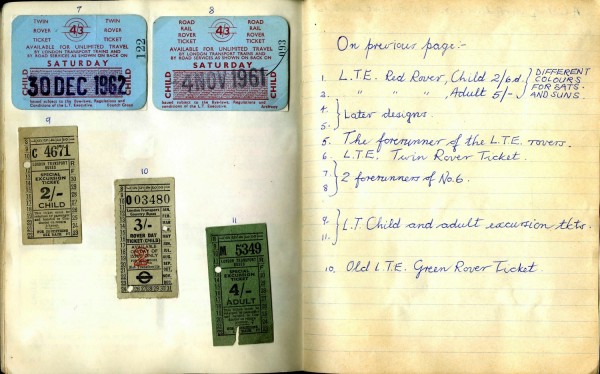 7
TWIN ROVER TICKET
4/3
TWIN ROVER TICKET
AVAILABLE FOR UNLIMITED TRAVEL
BY LONDON TRANSPORT TRAINS AND
BY ROAD SERVICES AS SHOWN ON BACK ON
SATURDAY
CHILD
30 DEC 1962
CHILD
Issued subject to the Bye-laws, Regulations and
Conditions of the L.T. Executive.
122
8
ROAD RAIL ROVER TICKET
4/3
ROAD RAIL ROVER TICKET
AVAILABLE FOR UNLIMITED TRAVEL
BY LONDON TRANSPORT TRAINS AND
BY ROAD SERVICES AS SHOWN ON BACK ON
SATURDAY
CHILD
4 NOV 1961
CHILD
Issued subject to the Bye-laws, Regulations and
Conditions of the L.T. Executive.
Archway
9
C 4671
LONDON TRANSPORT
SPECIAL
EXCURSION
TICKET
2/-
CHILD
10
O 03480
London Transport
Country Buses
3/-
ROVER DAY
TICKET (CHILD)
AVAILABLE
11
5349
LONDON TRANSPORT
SPECIAL
EXCURSION
TICKET
4/-
ADULT
On previous page:-
1. L.T.E. Red Rover, Child 2/6d.
2. " " " Adult 5/-
DIFFERENT
COLOURS
FOR SATS.
AND SUNS.
4.
5. Later designs.
5. The forerunner of the L.T.E. rovers.
6. L.T.E. Twin Rover Ticket.
7.
8. 2 forerunners of No.6.
9.
11. L.T. Child and adult excursion tkts.
10. Old L.T.E. Green Rover Ticket.